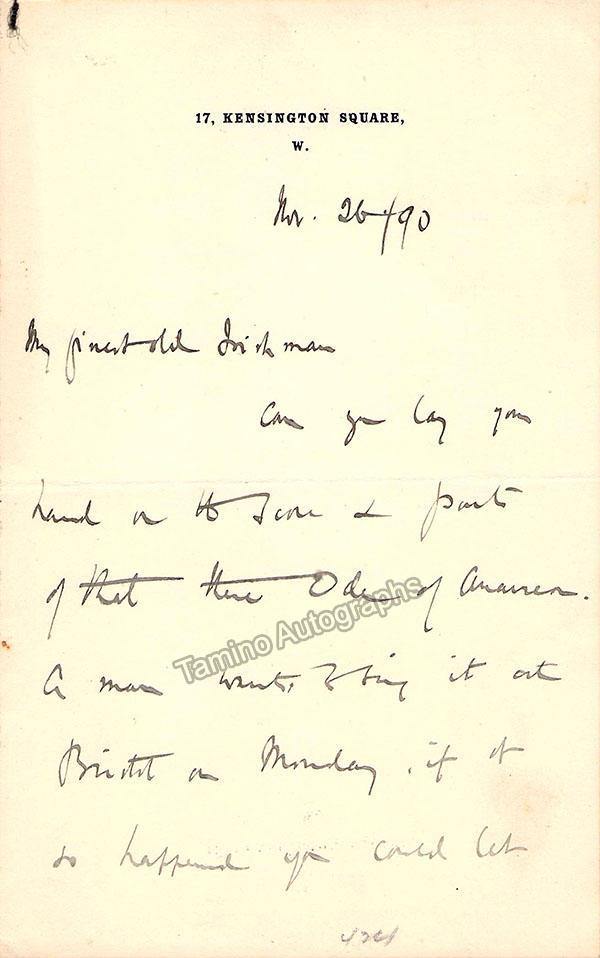 17, KENSINGTON SQUARE,
W.
Nov. 26/90
My finest old Irishman
Can you lay your
hand on the Score & parts
of that there Ode of Anacreon.
A man wants to sing it at
Bristol on Monday. if it
so happened you could let
Tamino Autographs